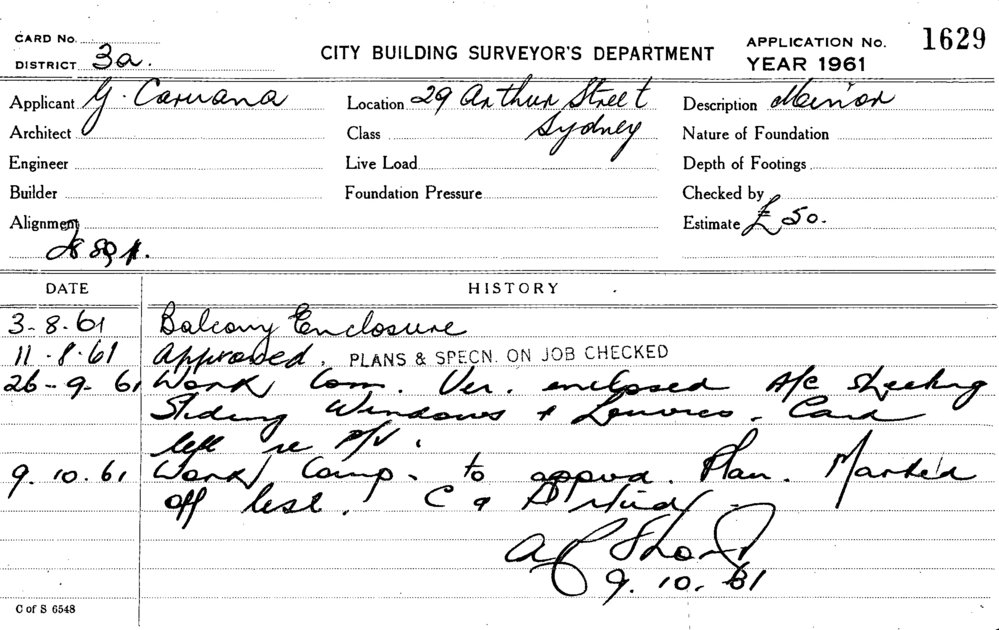 CARD No.
DISTRICT 3a.
CITY BUILDING SURVEYOR'S DEPARTMENT
APPLICATION No. 1629
YEAR 1961
Applicant G. Caruana
Location 29 Arthur Street
Sydney
Description Minor
Architect
Class
Nature of Foundation
Engineer
Live Load
Depth of Footings
Builder
Foundation Pressure
Checked by
Alignment
Estimate £ 50.
DATE HISTORY
3-8.61 Balcony Enclosure
11.8.61 Approved. PLANS & SPECN. ON JOB CHECKED
26-9-61 Work Com. Ver. enclosed A/c Sheeting
Sliding Windows & Louvres. Card
left re
9.10.61 Work Comp. to approd. Plan. Marked
off
9.10.61
C of S 6548